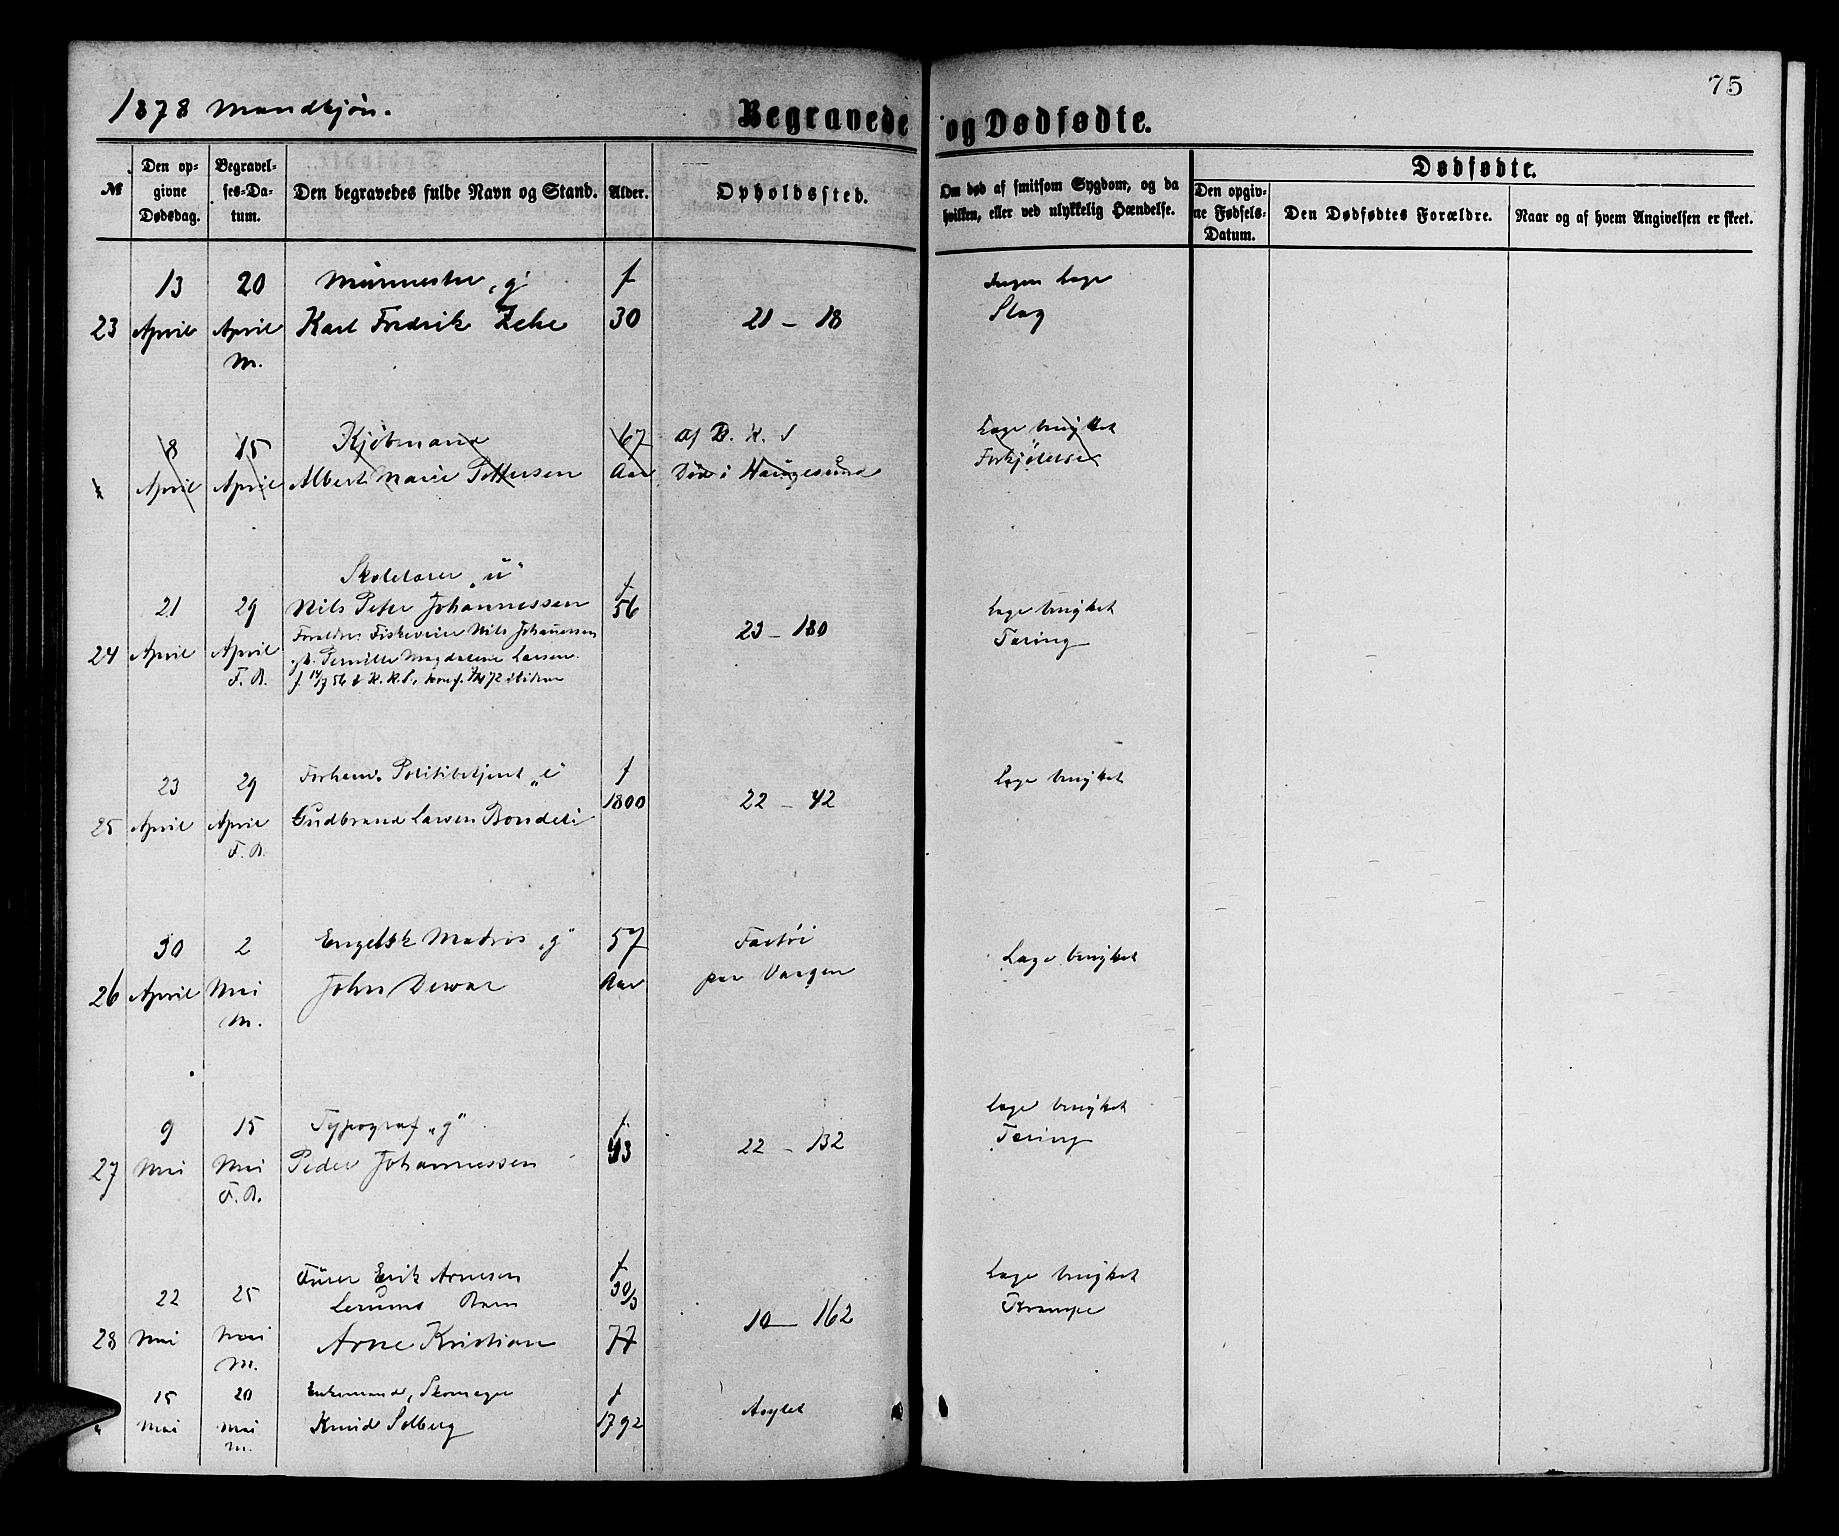 75
1878 Mandkjøn.
Begravede og Dødfødte.
№
Den opgivne Dødsdag.
Begravelses-Datum.
Den begravedes fulde Navn og Stand.
Alder.
Opholdssted.
Om død af smitsom Sygdom, og da hvilken, eller ved ulykkelig Hændelse.
Dødfødte.
Den opgivne Fødsels-Datum.
Den Dødfødtes Forældre.
Naar og af hvem Angivelsen er skeet.
13 20 Murmester „g" f Ingen Læge
23 April April Karl Fredrik 30 21 - 18 Slag
M.
8 15 Kjøbmand 67 af D. K. S Læge brugket
April April Albert Marie Pettersen Aar Død i Haugesund Forkjølelse
Skolelærer „u"
21 29 Nils Peter Johannessen f 56 Læge brugket
24 April April Forældre: Nils Johannessen 23 - 180 Tæring
F. B. og Pernille Magdalene Larsen
23 29 Forhenv. Politibetjent „e" f Læge brugket
25 April April Gudbrand Larsen Bondeli 1800 22 - 42
F. B.
30 2 Engelsk Matros „g" 57 Læge brugket
26 April Mai John Dewar Aar paa Vaagen
M.
9 15 Typograf „g" f Læge brugket
27 Mai Mai Peder Johannessen 43 22 - 132 Tæring
F. B.
22 25 Erik Arnesen f 30/3 Læge brugket
Lerums Barn Krampe
28 Mai Mai Arne Kristian 77 10 - 162
M.
15 20 Enkemand, Skomager f
Mai Mai Knud Solberg 1792 Asylet
M.